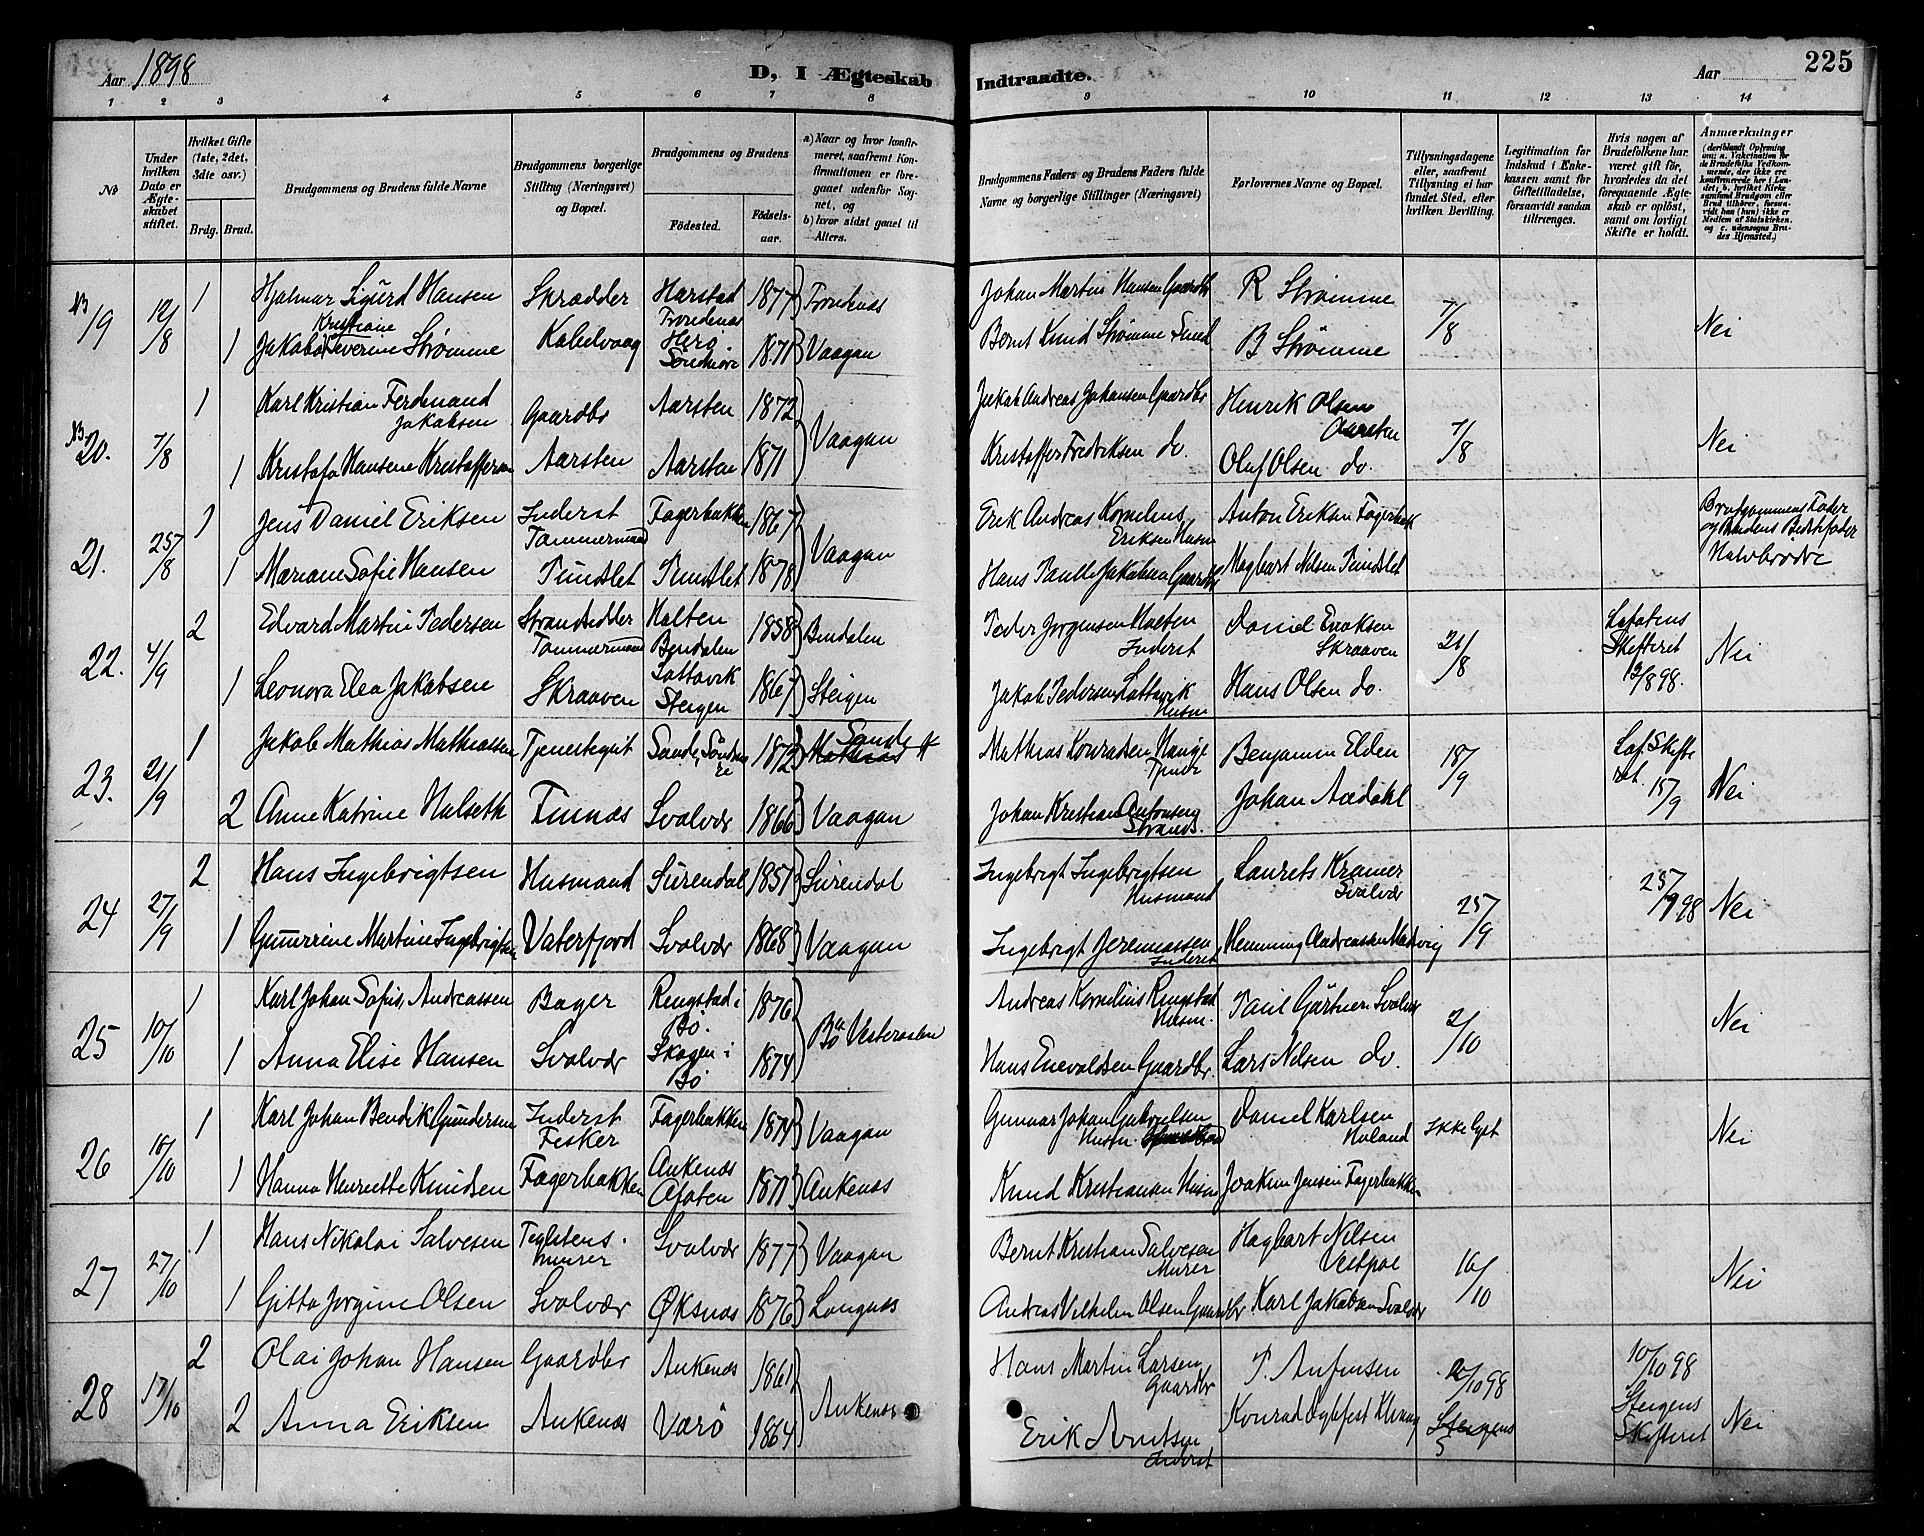 Aar 1898
D, I Ægteskab
Indtraadte.
Aar
225
1 2 3 4 5 6 7 8 9 10 11 12 13 14
No
Under hvilken Dato er Ægteskabet stiftet.
Hvilket Gifte (1ste, 2det, 3die osv.)
Brdg. Brud.
Brudgommens og Brudens fulde Navne
Brudgommens borgerlige Stilling (Næringsvei) og Bopæl.
Brudgommens og Brudens
Fødested.
Fødsels-aar.
a) Naar og hvor konfirmeret, saafremt Konfirmationen er foregaaet udenfor Sognet, og
b) hvor sidst gaaet til Alters.
Brudgommens Faders og Brudens Faders fulde Navne og borgerlige Stillinger (Næringsvei)
Forlovernes Navne og Bopæl.
Tillysningsdagene eller, saafremt Tillysning ei har fundet Sted, efter hvilken Bevilling.
Legitimation for Indskud i Enkekassen samt for Giftetilladelse, forsaavidt saadan tiltrænges.
Hvis nogen af Brudefolkene har været gift før, hvorledes da det foregaaende Ægteskab er opløst, samt om lovligt Skifte er holdt.
Anmærkninger (deriblandt Oplysning om: a. Vakcination for de Brudefolks Vedkommende, der ikke ere konfirmerede her i Landet; b. hvilket Kirkesamfund Brudgom eller Brud tilhører, forsaavidt han (hun) ikke er Medlem af Statskirken. og c. udensogns Brudes Hjemsted.)
NB 19 12/8 1 Hjalmar Sigurd Hansen Skrædder Harstad Trondenæs 1877 Trondenæs Johan Martin Hansen Gaardbr R Strømme 7/8 Nei
1 Jakoba Kristiane Severine Strømme Kabelvaag Herø Söndmöre 1871 Vaagan Bernt Knud Strømme Smed B Strømme
NB 20. 7/8 1 Karl Kristian Ferdinand Jakobsen Gaardbr Aarsten 1872 Vaagan Jakob Andreas Johansen Gaardbr Henrik Olsen Aarsten 7/8 Nei
1 Kristofa Hansene Kristoffersen Aarsten Aarsten 1871 Kristoffer Fredriksen do. Oluf Olsen do.
21. 25/8 1 Jens Daniel Eriksen Inderst Tømmermand Fagerbakken 1867 Vaagan Erik Andreas Kornelius Eriksen Husm Anton Eriksen Fagerbakk Brudgommens Fader og Brudens Bedstefader Halvbrødre
1 Mariane Sofie Hansen Pundslet Pundslet 1878 Hans Paulle Jakobsen Gaardbr Hagbart Nilsen Pundslet
22. 4/9 2 Edvard Martin Pedersen Strandsidder Tømmermand Holten Beudalen 1858 Beudalen Peder Jørgensen Holten Inderst Daniel Eriksen Skraaven 21/8 Lofotens Skifteret 12/8 98. Nei
1 Leonora Elea Jakobsen Skraaven Lottavik Steigen 1867 Steigen Jakob Pedersen Lottavik Husm Hans Olsen do.
23. 21/9 1 Jakob Mathias Mathiassen Tjenestegut Sande, Söndmöre 1872 Sande Mathias Konradsen Hauge Benjamin Elden 18/9 Lof. Skifteret. 15/9 Nei
2 Anne Katrine Halseth Finnæs Svolvær 1866 Vaagan Johan Kristian Antonsen Strands. Johan Aadahl
24 27/9 2 Hans Ingebrigtsen Husmand Surendal 1851 Surendal Ingebrigt Ingebrigtsen Husmand Laurits Kramer Svolvær 25/9 25/9 98 Nei
1 Gunerrine Martine Ingebrigtsen Vaterfjord Svolvær 1868 Vaagan Ingebrigt Jeremiassen Inderst Hemming Andreassen
25 10/10 1 Karl Johan Sofus Andreassen Bager Ringstad i Bö. 1876 Bö Vesteraalen Andreas Kornelius Ringstad Husm. Paul Gärtner Svolvær 2/10 Nei
1 Anna Elise Hansen Svolvær Skagen i Bö 1874 Hans Enevoldsen Gaardbr. Lars Nilsen do.
26 16/10 1 Karl Johan Bendik Gundersen Inderst Fisker Fagerbakken 1874 Vaagan Gunnar Johan Gabrielsen Husm Daniel Karlsen Holand Ikke lyst Nei
1 Hanna Henriette Knudsen Fagerbakken Ankenæs Ofoten 1871 Ankenæs Knud Kristiansen Husm Joakim Jensen Fagerbakken
27 27/10 1 Hans Nikolai Salvesen Teglstens-murer Svolvær 1877 Vaagan Bernt Kristian Salvesen Murer Hagbart Nilsen Vestpol 16/10 Nei
1 Gitta Jørgine Olsen Svolvær Øksnæs 1876 Langnes Andreas Vilhelm Olsen Gaardbr Karl Jakobsen Svolvær
28 17/10 2 Olai Johan Hansen Gaardbr Ankenæs 1861 Ankenæs Hans Martin Larsen Gaardbr P. Anfinsen 2/10 98 10/10 98 Steigens Skifteret Nei
2 Anna Eriksen Ankenæs Værö 1864 Erik Arntsen Inderst Konrad Steigens